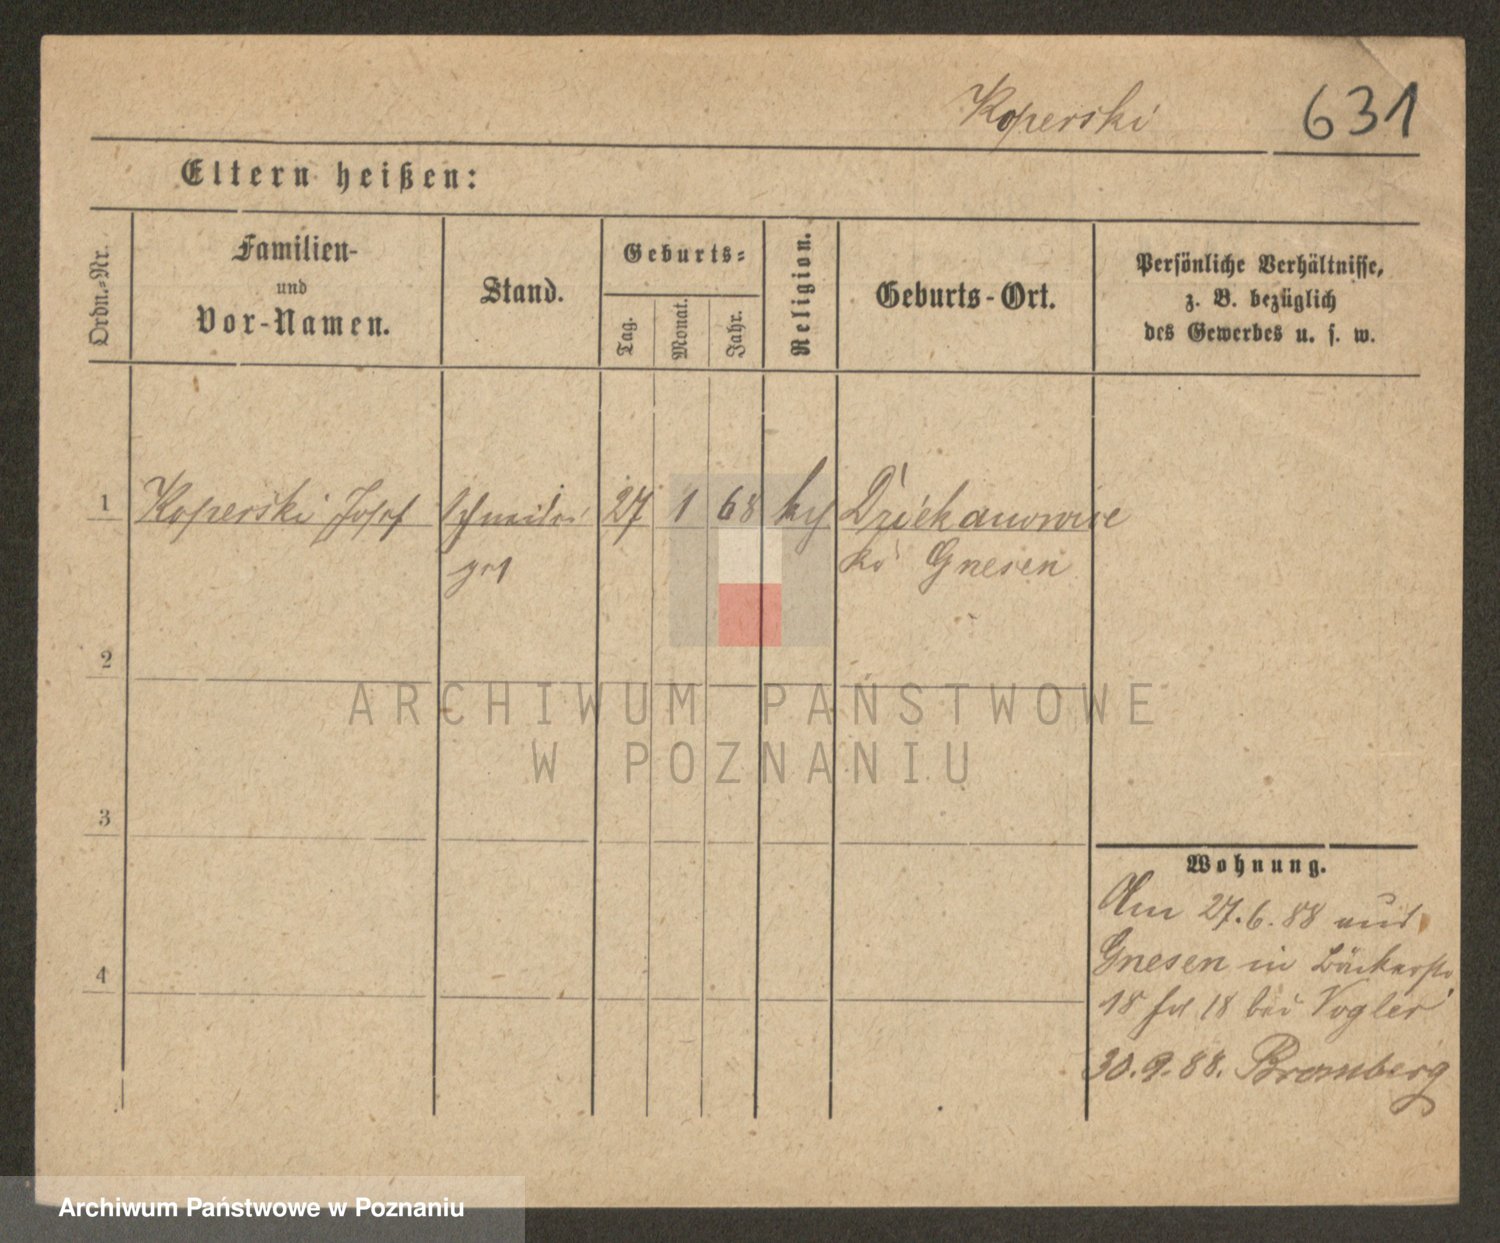 Koperski 631
Eltern heißen:
Ordn.-Nr.
Familien-
und
Vor-Namen.
Stand.
Geburts-
Tag.
Monat.
Jahr.
Religion.
Geburts-Ort.
Persönliche Verhältnisse,
z. B. bezüglich
des Gewerbes u. s. w.
1 Koperski Josef Schneider 27 1 68 Dziekanowice
Gnesen
2
3
4
Wohnung.
Am 27.6.88 aus
Gnesen in Bäckerstr.
18 bei Vogler
30.9.88. Bromberg
ARCHIWUM PAŃSTWOWE
W POZNANIU
Archiwum Państwowe w Poznaniu